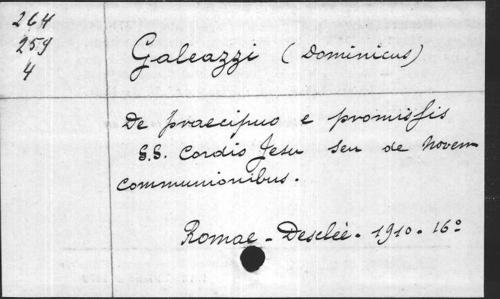 264
259
4
Galeazzi (Dominicus)
De praecipuo e promissis
S.S. Cordis Jesu seu de Novem
communionibus.
Romae - Desclée. 1910. 16º